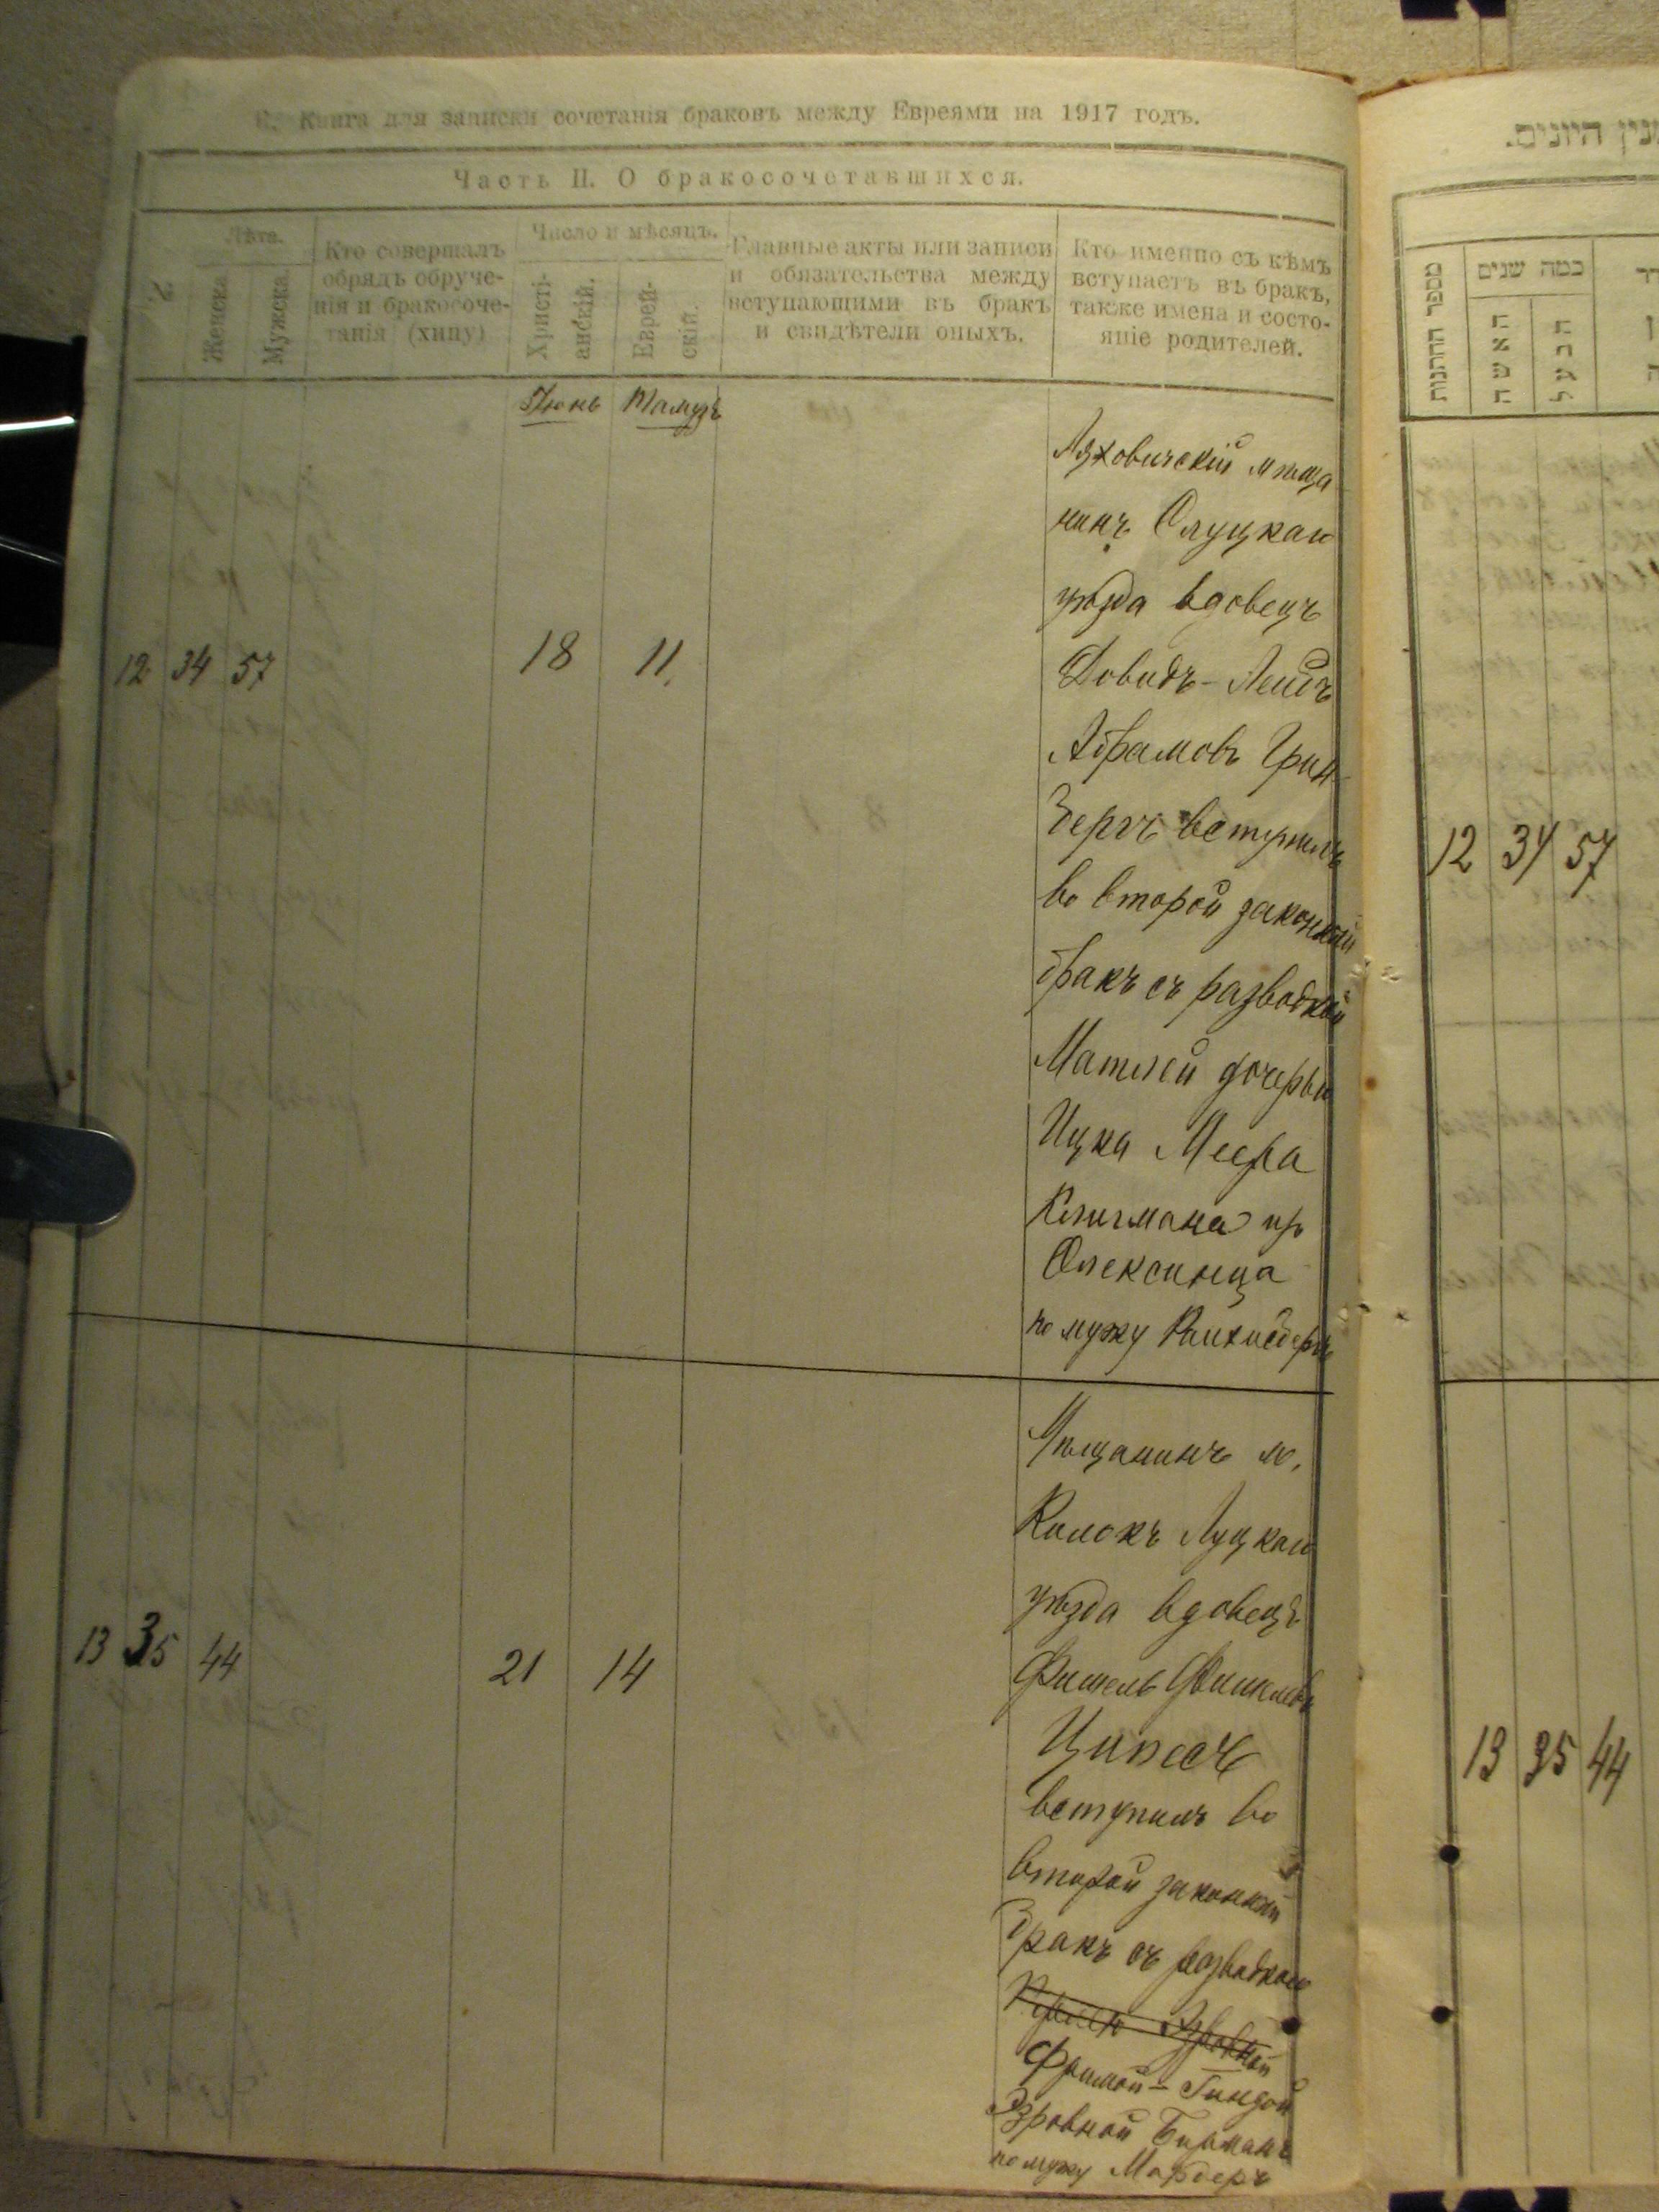 Книга для записки сочетанія браковъ между Евреями на 1917 годъ.
Часть II. О бракосочетавшихся.
№.
Лѣта.
Женска
Мужска
Кто совершалъ
обрядъ обруче-
нія и бракосоче-
танія (хипу)
Число и мѣсяцъ.
Христі-
анскій.
Еврей-
скій.
Главные акты или записи
и обязательства между
вступающими въ бракъ
и свидѣтели оныхъ.
Кто именно съ кѣмъ
вступаетъ въ бракъ,
также имена и состо-
яніе родителей.
Іюнь Тамузъ
12 34 57 18 11
Ляховичскій мѣща-
нинъ Слуцкаго
уѣзда вдовецъ
Довидъ-Лейбъ
Абрамовъ Грин-
бергъ вступилъ
во второй законный
бракъ съ разводкой
Матлей дочерью
Ицка Меера
Клигмана изъ
Олексинца
по мужу
13 35 44 21 14
Мѣщанинъ м.
Колокъ Луцкаго
уѣзда вдовецъ
Фишель Фишелевъ
Ципесъ
вступилъ во
второй законный
бракъ съ разводкою
Фримой-Гиндой
Эзровной Бирманъ
по мужу Мардеръ
היונים.
מספר החתונות
כמה שנים
האשה
הבעל
12 34 57
13 35 44